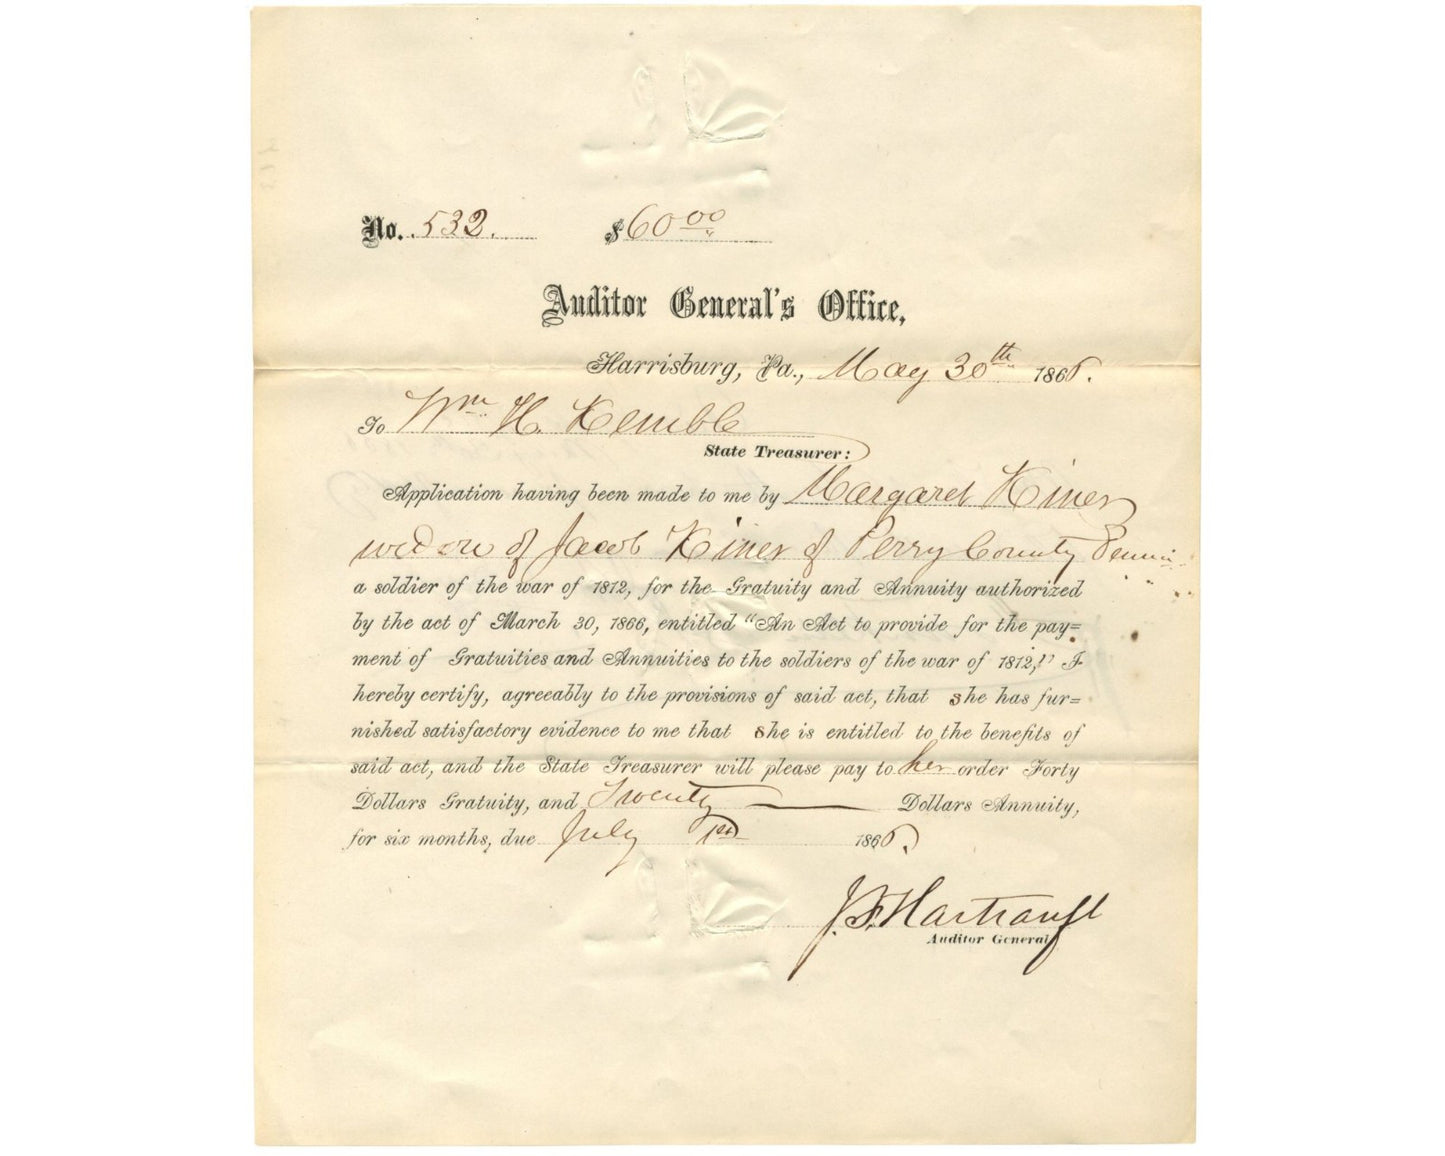 No. 532. $60 00
Auditor General's Office,
Harrisburg, Pa., May 30th 1866.
To Wm. H. Kemble
State Treasurer:
Application having been made to me by Margaret Kiner
widow of Jacob Kiner of Perry County Penn
a soldier of the war of 1812, for the Gratuity and Annuity authorized
by the act of March 30, 1866, entitled "An Act to provide for the pay=
ment of Gratuities and Annuities to the soldiers of the war of 1812," I
hereby certify, agreeably to the provisions of said act, that she has fur=
nished satisfactory evidence to me that she is entitled to the benefits of
said act, and the State Treasurer will please pay to her order Forty
Dollars Gratuity, and Twenty Dollars Annuity,
for six months, due July 1st 1866.
J. F. Hartranft
Auditor General